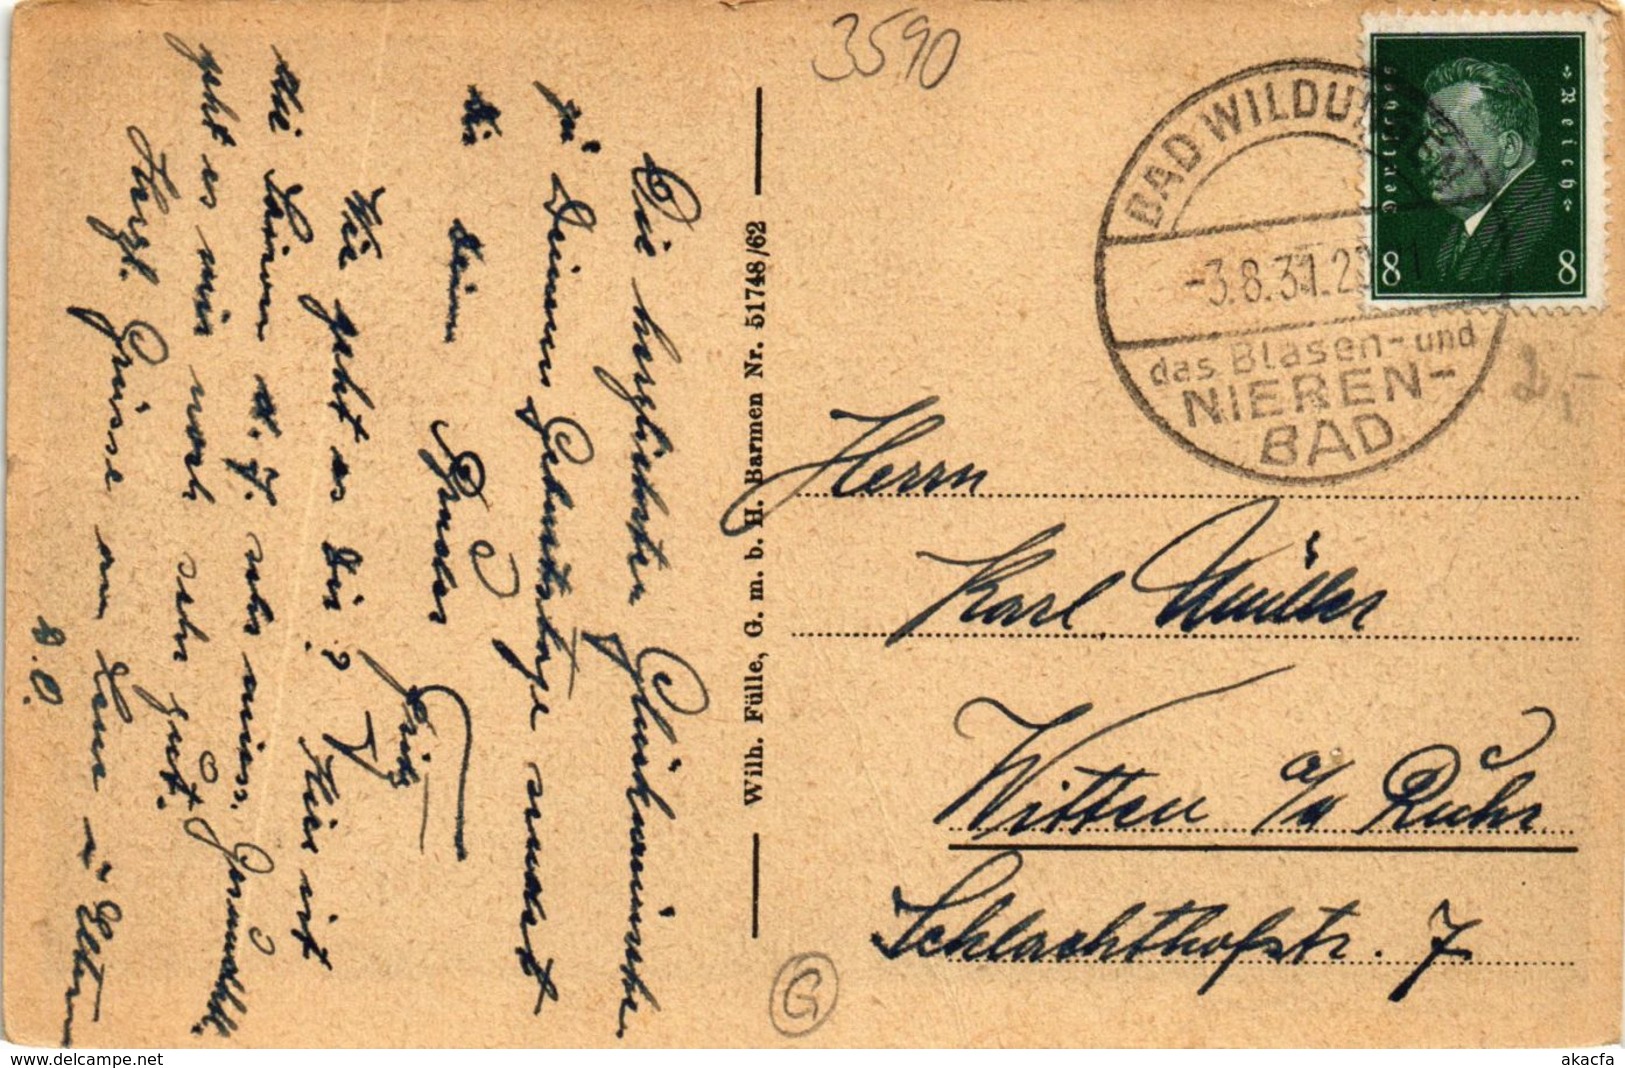 3590
BAD WILDUNGEN
-3.8.31.2
das Blasen- und
NIEREN-
BAD
Deutsches
Reich
8 8
2,-
Herrn
Karl Müller
Witten a/d Ruhr
Schlachthofstr. 7
Wilh. Fülle, G. m. b. H. Barmen Nr. 51748/62
Die herzlichsten Glückwünsche
zu Deinem Geburtstage sendet
Dir Dein Bruder
Fritz
Wie geht es Dir? Hier ist
die Saison d. J. sehr mies. Gesundheitl.
geht es mir noch sehr gut.
Herzl. Grüsse an Lene u Eltern
D.O.
G
delcampe.net
akacfa